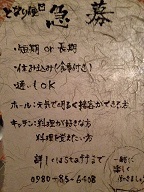 となり畑日 急募
・短期 or 長期
・住み込み(食事付き)
・通いOK
ホール:元気で明るく接客ができる方
キッチン:料理が好きな方
料理を覚えたい方
詳しくはstaffまで
0980-85-6408
一緒に
楽しく